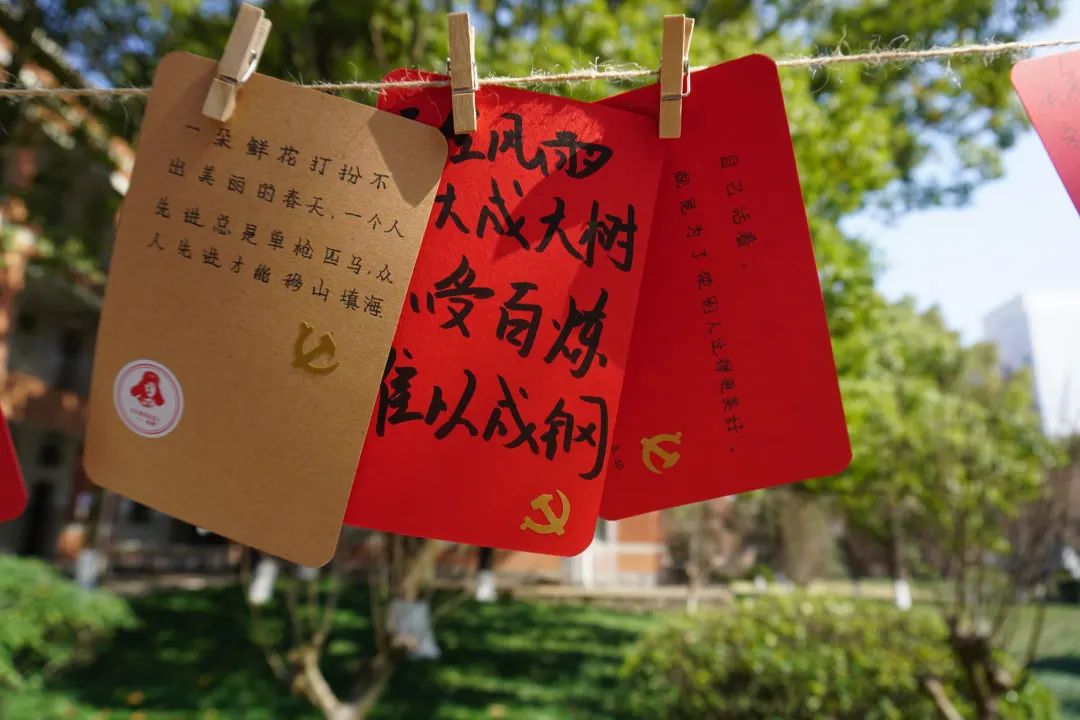 一朵鲜花打扮不
出美丽的春天,一个人
先进总是单枪匹马,众
人先进才能移山填海.
风雨
成大树
受百炼
以成钢
自己活着,
就是为了使别人过得更美好.